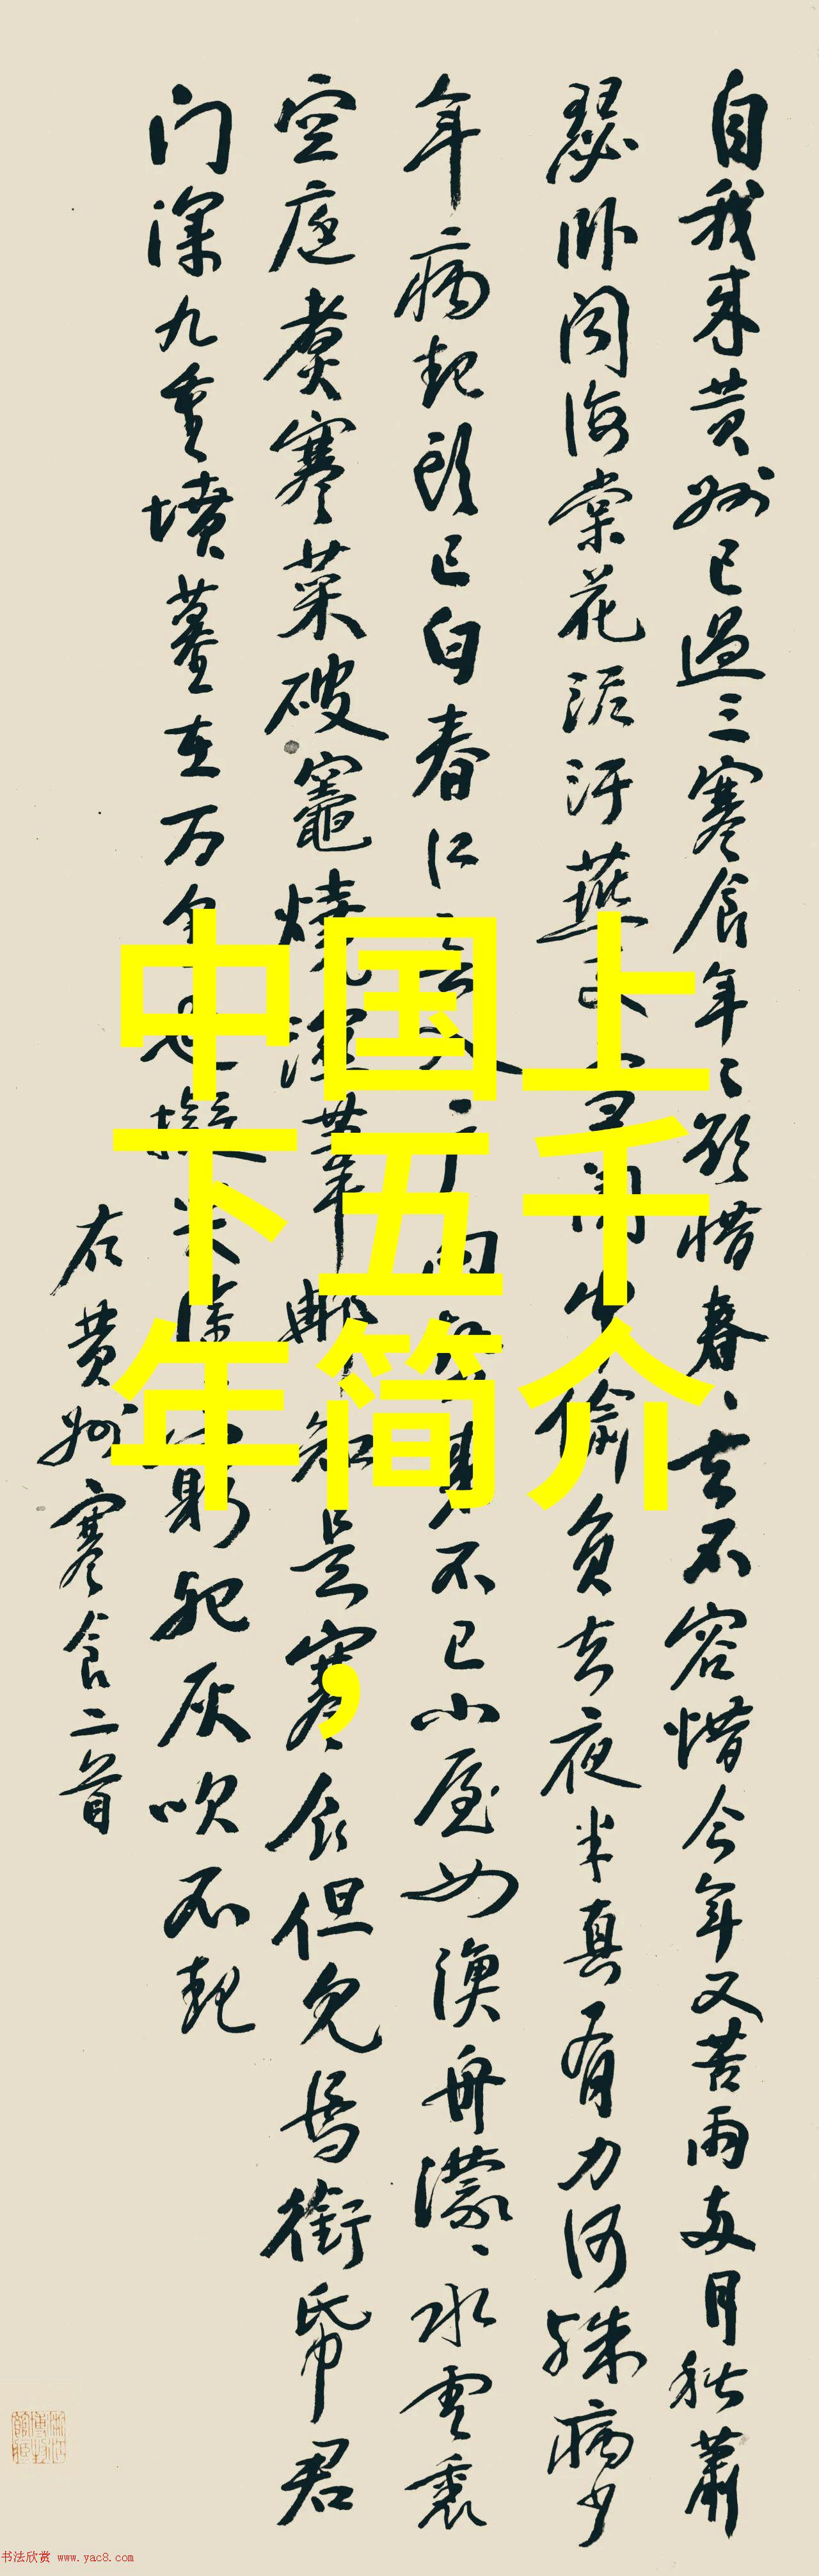 自我来黄州已過三寒食年々欲惜春、去不容惜今年又苦雨两月秋蕭
瑟卧闻海棠花泥汙燕支雪闇中偷負去夜半真有力何殊病少
年病起頭已白春江欲入户雨势来不已小屋如漁舟濛、水雲裏
空庖煮寒菜破竈燒濕葦那知是寒食但見烏銜帋君
门深九重墳墓在万里也擬哭途窮死灰吹不起
右黄州寒食二首
中国上
下五千
年简介
，
书法欣赏 www.yac8.com